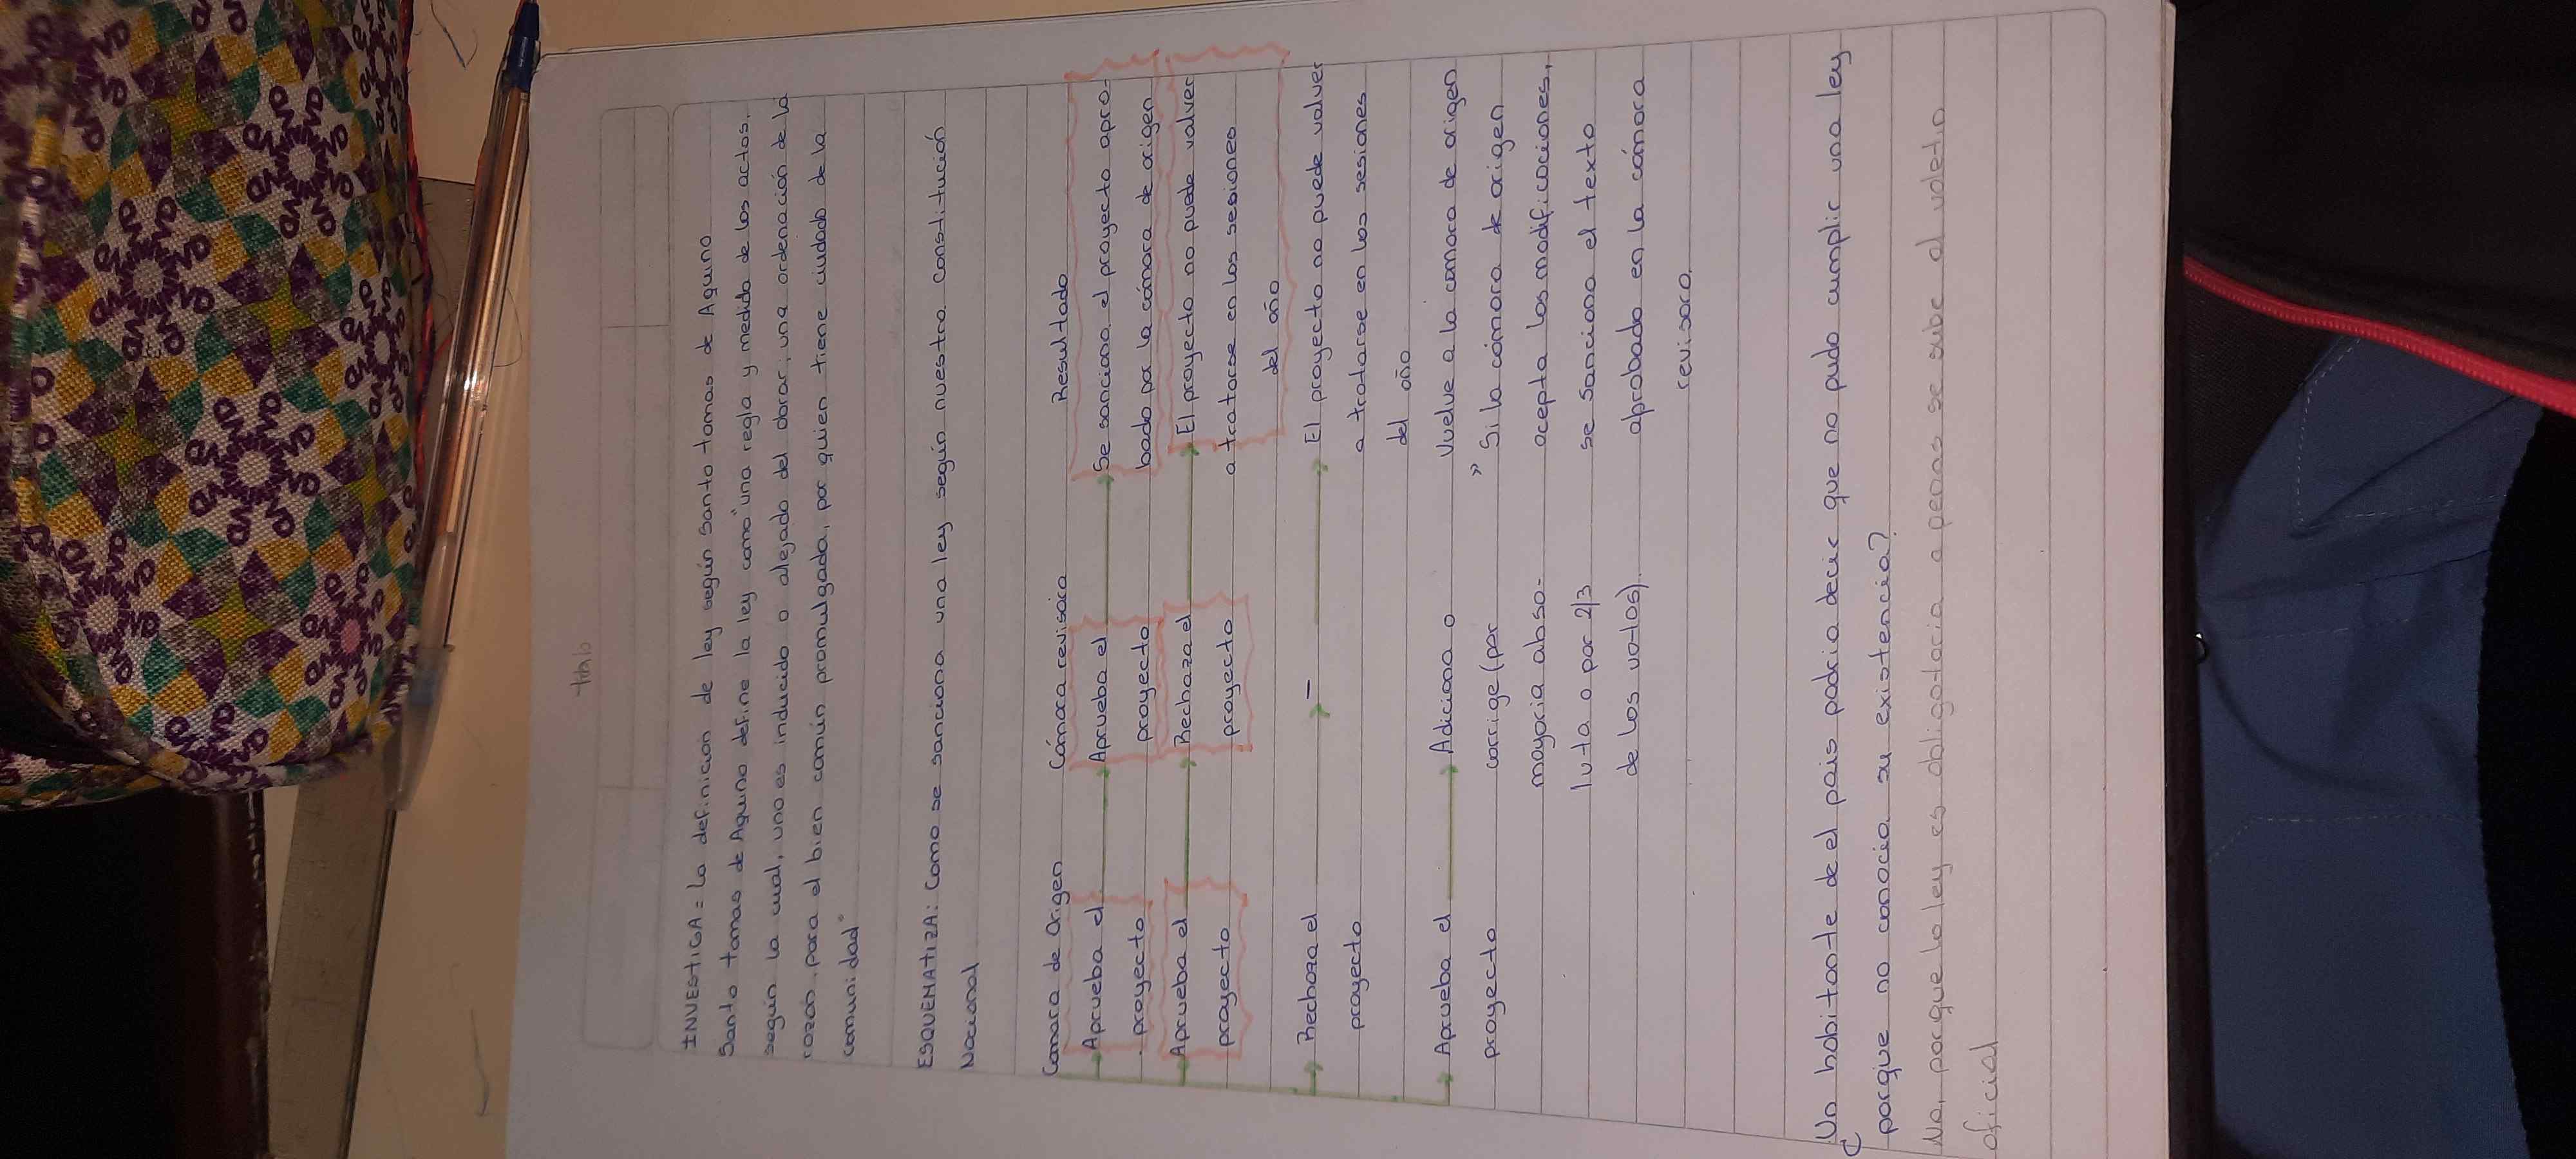 titulo
INVESTIGA: La definicion de ley según Santo tomas de Aquino
Santo tomas de Aquino define la ley como "una regla y medida de los actos,
según la cual, uno es inducido o alejado del obrar; una ordenación de la
razon, para el bien común promulgada, por quien tiene ciudado de la
comunidad"
ESQUEMATIZA: Como se sanciona una ley según nuestra constitución
Nacional
Camara de Origen Cámara revisora Resultado
Aprueba el Aprueba el Se sanciona el proyecto apro-
proyecto proyecto bado por la cámara de origen
Aprueba el Rechaza el El proyecto no puede valver
proyecto proyecto a tratarse en los sesiones
del año
Rechaza el - El proyecto no puede valver
proyecto a tratarse en los sesiones
del año
Aprueba el Adiciona o Vuelve a la camara de origen
proyecto corrige (por » Si la cámara de origen
mayoria abso- acepta las modificaciones,
luta o por 2/3 se sanciona el texto
de los votos). aprobado en la cámara
revisora.
¿Un habitante de el pais podria decir que no pudo cumplir una ley
porque no conocia su existencia?
No, porque la ley es obligatoria a penas se sube al voletin
oficial